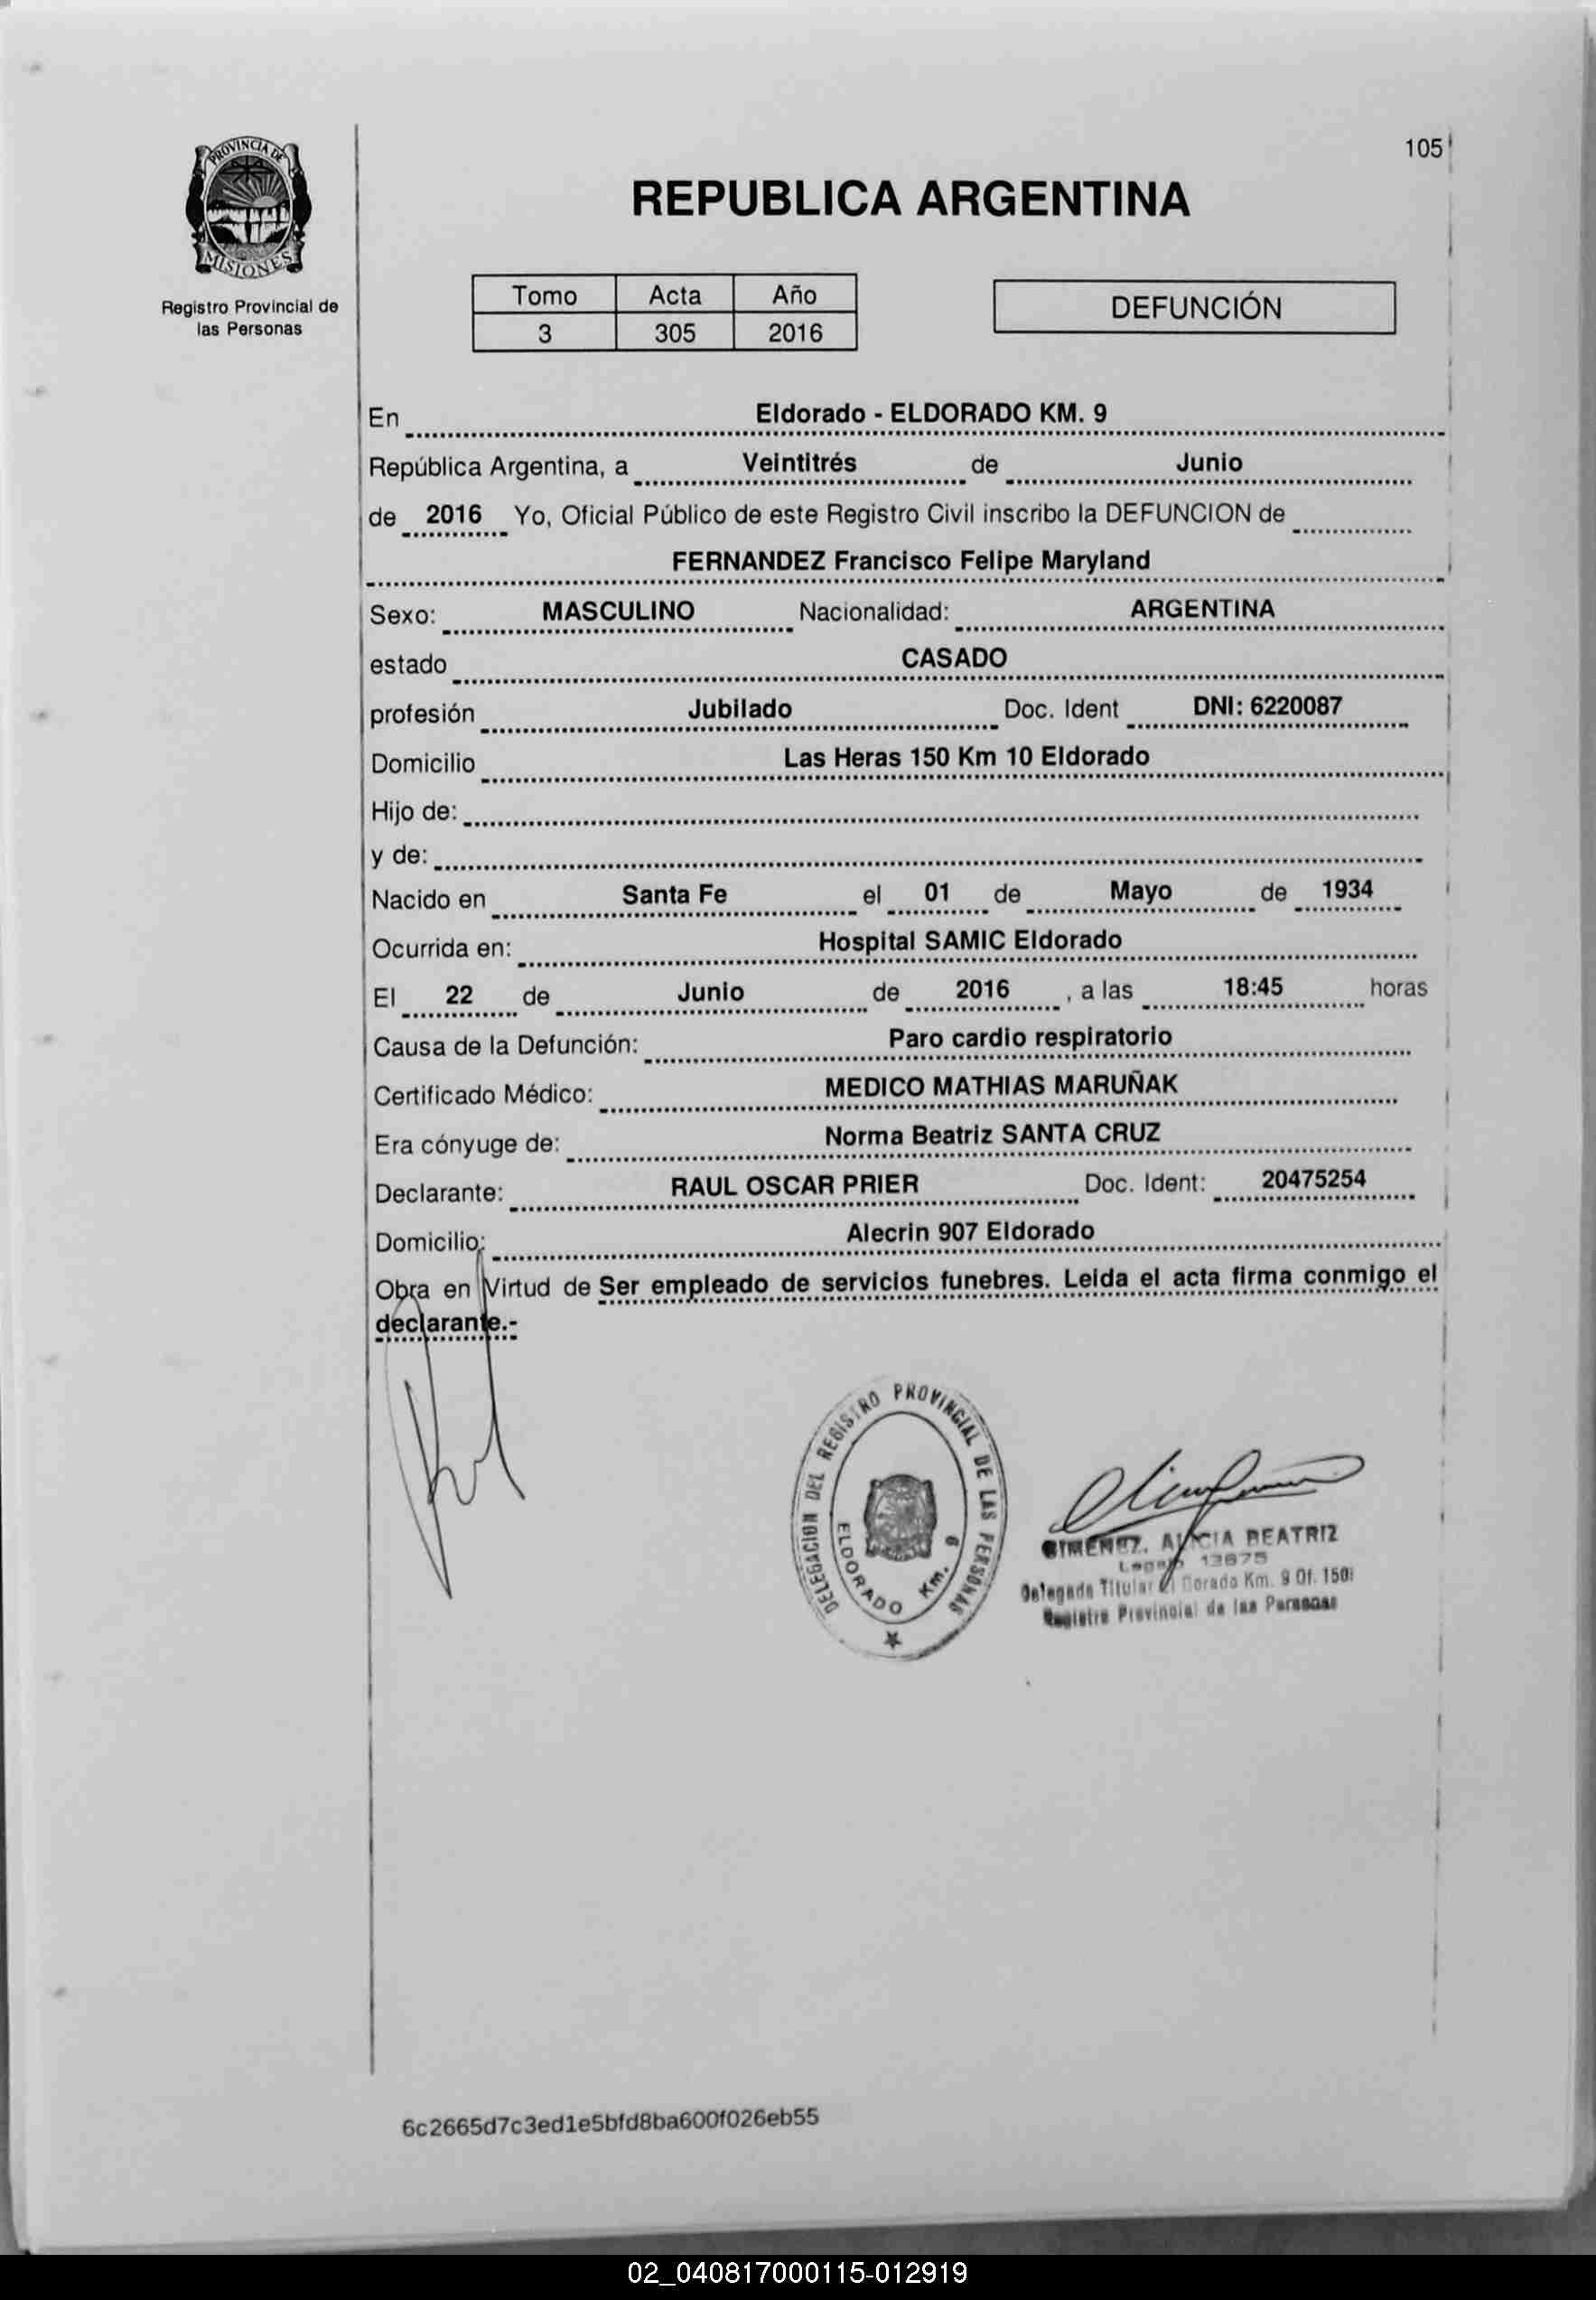 105
PROVINCIA DE
MISIONES
Registro Provincial de
las Personas
REPUBLICA ARGENTINA
Tomo Acta Año
3 305 2016
DEFUNCIÓN
En Eldorado - ELDORADO KM. 9
República Argentina, a Veintitrés de Junio
de 2016 Yo, Oficial Público de este Registro Civil inscribo la DEFUNCION de
FERNANDEZ Francisco Felipe Maryland
Sexo: MASCULINO Nacionalidad: ARGENTINA
estado CASADO
profesión Jubilado Doc. Ident DNI: 6220087
Domicilio Las Heras 150 Km 10 Eldorado
Hijo de:
y de:
Nacido en Santa Fe el 01 de Mayo de 1934
Ocurrida en: Hospital SAMIC Eldorado
El 22 de Junio de 2016 , a las 18:45 horas
Causa de la Defunción: Paro cardio respiratorio
Certificado Médico: MEDICO MATHIAS MARUÑAK
Era cónyuge de: Norma Beatriz SANTA CRUZ
Declarante: RAUL OSCAR PRIER Doc. Ident: 20475254
Domicilio: Alecrin 907 Eldorado
Obra en Virtud de Ser empleado de servicios funebres. Leida el acta firma conmigo el
declarante.-
DELEGACION DEL REGISTRO PROVINCIAL DE LAS PERSONAS
ELDORADO KM. 9
GIMENEZ, ALICIA BEATRIZ
Legajo 13675
Delegada Titular El Dorado Km. 9 Of. 150
Registro Provincial de las Personas
6c2665d7c3ed1e5bfd8ba600f026eb55
02_040817000115-012919